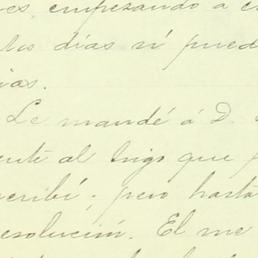 res empezando a e
tos dias ni pued
ias.
Le mandé á D.
ente al trigo que
cribí; pero hasta
esolución. El me